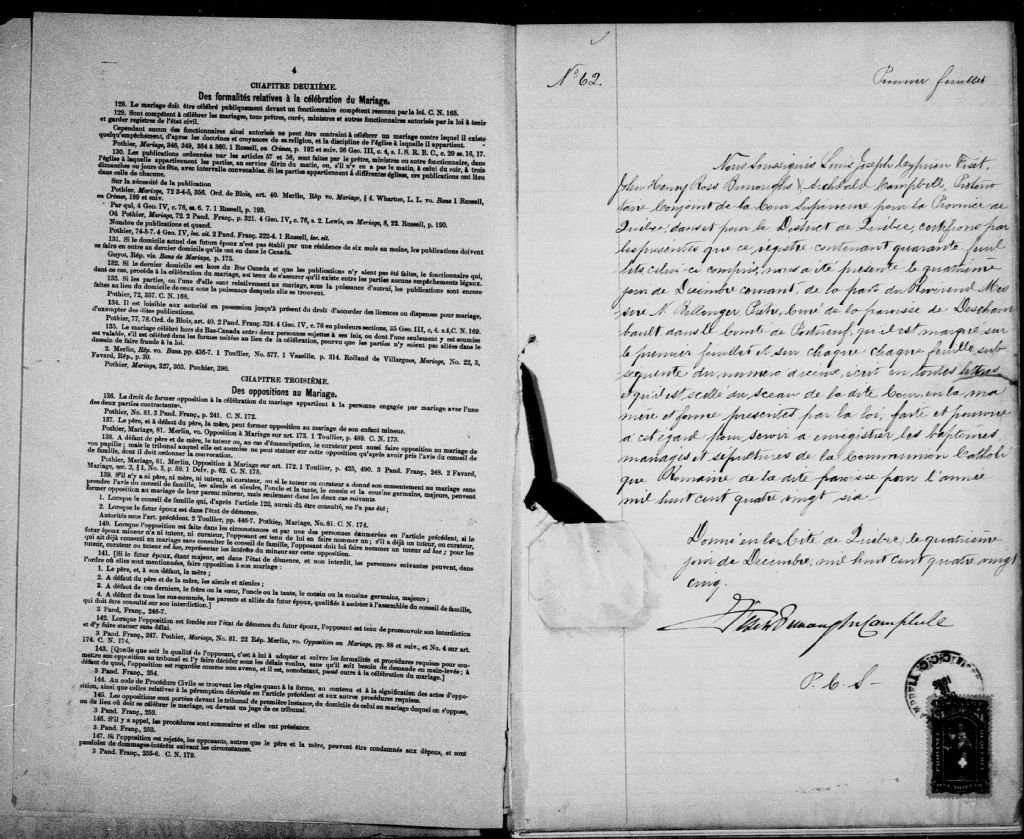 4
CHAPITRE DEUXIÈME.
Des formalités relatives à la célébration du Mariage.
128. Le mariage doit être célébré publiquement devant un fonctionnaire compétent reconnu par la loi. C. N. 165.
129. Sont compétents à célébrer les mariages, tous prêtres, curés, ministres et autres fonctionnaires autorisés par la loi à tenir
et garder registres de l'état civil.
Cependant aucun des fonctionnaires ainsi autorisés ne peut être contraint à célébrer un mariage contre lequel il existe
quelqu'empêchement, d'après les doctrines et croyances de sa religion, et la discipline de l'église à laquelle il appartient.
Pothier, Mariage, 346, 349, 354 à 360. 1 Russell, on Crimes, p. 192 et suiv. 36 Geo. III, c. 4, s. 1. S. R. B. C., c. 20 ss. 16, 17.
130. Les publications ordonnées par les articles 57 et 58, sont faites par le prêtre, ministre ou autre fonctionnaire, dans
l'église à laquelle appartiennent les parties, au service divin du matin, ou, s'il n'y en a pas le matin, à celui du soir, à trois
dimanches ou jours de fête, avec intervalle convenables. Si les parties appartiennent à différentes églises, ces publications ont lieu
dans celle de chacune.
Sur la nécessité de la publication
Pothier, Mariage, 72 3-4-5, 356. Ord. de Blois, art. 40. Merlin, Rép vo. Mariage, § 4. Wharton, L. L. vo. Bans 1 Russell,
on Crimes, 189 et suiv.
Par qui, 4 Geo. IV, c. 76, ss. 6. 7. 1 Russell, p. 193.
Où Pothier, Mariage, 72. 2 Pand. Franç., p. 321. 4 Geo. IV, c. 76, s. 2. Lewis, on Mariage, 8, 22. Russell, p. 190.
Nombre de publications et quand.
Pothier, 74-5-7. 4 Geo. IV, loc. cit. 2 Pand. Franç. 322-4. 1 Russell, loc. cit.
131. Si le domicile actuel des futurs époux n'est pas établi par une résidence de six mois au moins, les publications doivent
se faire en outre au dernier domicile qu'ils ont eu dans le Canada.
Guyot, Rép. vis. Bans de Mariage, p. 175.
132. Si le dernier domicile est hors du Bas Canada et que les publications n'y aient pas été faites, le fonctionnaire qui,
dans ce cas, procède à la célébration du mariage, est tenu de s'assurer qu'il existe entre les parties aucuns empêchements légaux.
133. Si les parties, ou l'une d'elle sont relativement au mariage, sous la puissance d'autrui, les publications sont encore
faites au lieu du domicile de ceux sous la puissance desquels elle se trouvent.
Pothier, 72, 357. C. N. 168.
134. Il est loisible aux autorité en possession jusqu'à présent du droit d'accorder des licences ou dispenses pour mariage,
d'exempter des dites publications.
Pothier, 77, 78. Ord. de Blois, art. 40. 2 Pand. Franç. 324. 4 Geo. IV, c. 76 en plusieurs sections, 35 Geo. III, c. 4, s. 4, C. N. 169.
135. Le mariage célébré hors du Bas-Canada entre deux personnes sujettes à ses lois, ou dont l'une seulement y est soumise
est valable, s'il est célébré dans les formes usitées au lieu de la célébration, pourvu que les parties n'y soient pas allées dans le
dessein de faire fraude à la loi.
2. Merlin, Rép. vo. Bans. pp. 436-7. 1 Toullier, No. 577. 1 Vazeille, p. 314. Rolland de Villargues, Mariage, No. 22, 3,
Favard, Rép., p. 30.
Pothier, Mariage, 327, 363. Pouhier, 390.
CHAPITRE TROISIÈME.
Des oppositions au Mariage.
136. Le droit de former opposition à la célébration du mariage appartient à la personne engagée par mariage avec l'une
des deux parties contractantes.
Pothier, No. 81. 3 Pand. Franç., p. 241. C. N. 172.
137. Le père, et à défaut du père, la mère, peut former opposition au mariage de son enfant mineur.
Pothier, Mariage, 81. Merlin, vo. Opposition à Mariage sur art. 173. 1 Toullier, p. 489. C. N. 173.
138. A défaut de père et de mère, le tuteur ou, au cas d'émancipation, le curateur peut aussi faire opposition au mariage de
son pupille; mais le tribunal auquel elle est soumise ne peut statuer sur cette opposition qu'après avoir pris l'avis du conseil de
famille, dont il doit ordonner la convocation.
Pothier, Mariage, 81. Merlin, Opposition à Mariage sur art. 172. 1 Toullier, p. 425, 490. 3 Pand. Franç., 248. 2 Favard,
Mariage, sec. 2, § 1, No. 3, p. 59. 1 Delv. p. 62. C. N. 175.
139. S'il n'y a ni père, ni mère, ni tuteur, ni curateur, ou si le tuteur ou curateur a donné son consentement au mariage sans
prendre l'avis du conseil de famille, les aïeuls et aïeules, l'oncle et la tante, le cousin et la cousine germains, majeurs, peuvent
former opposition au mariage de leur parent mineur, mais seulement dans les deux cas suivants
1. Lorsque le conseil de famille qui, d'après l'article 122, aurait dû être consulté, ne l'a pas été;
2. Lorsque le futur époux est dans l'état de démence.
Autorités sous l'art. précédent. 2 Toullier, pp. 446-7. Pothier, Mariage, No. 81. C. N. 174.
140. Lorsque l'opposition est faite dans les circonstances et par une des personnes énumérées en l'article précédent, si le
futur époux mineur n'a ni tuteur, ni curateur, l'opposant est tenu de lui en faire nommer un; s'il a déjà un tuteur, ou curateur,
qui ait déjà consenti au mariage sans consulter le conseil de famille, l'opposant doit lui faire nommer un tuteur ad hoc; pour les
tuteur, curateur ou tuteur ad hoc, représenter les intérêts du mineur sur cette opposition.
141. [Si le futur époux, étant majeur, est dans l'état de démence, et non interdit, les personnes suivantes peuvent, dans
l'ordre où elles sont mentionnées, faire opposition à son mariage:
1. Le père, et, à son défaut, la mère;
2. A défaut du père et de la mère, les aïeuls et aïeules;
3. A défaut de ces derniers, le frère ou la sœur, l'oncle ou la tante, le cousin ou la cousine germains, majeurs;
4. A défaut de tous les sus-nommés, les parents et alliés du futur époux, qualifiés à assister à l'assemblée du conseil de famille,
qui doit être consulté sur son interdiction.]
3 Pand. Franç., 246-7.
142. Lorsque l'opposition est fondée sur l'état de démence du futur époux, l'opposant est tenu de promouvoir son interdiction
et d'y faire statuer sans délai.
3 Pand. Franç., 247. Pothier, Mariage, No. 81. 22 Rép. Merlin, vo. Opposition au Mariage, pp. 88 et suiv., et No. 4 sur art.
174. C. N. 174.
143. [Quelle que soit la qualité de l'opposant, c'est à lui à adopter et suivre les formalités et procédures requises pour sou-
mettre son opposition au tribunal et l'y faire décider sous les délais voulus, sans qu'il soit besoin de demande en main-levée; à
défaut de quoi, l'opposition est regardée comme non avenue, et il est, nonobstant, passé outre à la célébration du mariage.]
3 Pand. Franç., 254.
144. Au code de Procédure Civile se trouvent les règles quant à la forme, au contenu et à la signification des actes d'oppo-
sition, ainsi que celles relatives à la péremption décrétée en l'article précédent et aux autres procédures requises.
145. Les oppositions sont portées devant le tribunal de première instance, du domicile de celui au mariage duquel on s'oppose,
ou du lieu où doit se célébrer le mariage, ou devant un juge de ce tribunal.
3 Pand. Franç., 253.
146. S'il y a appel, les procédures sont sommaires et elles ont préséance.
3 Pand. Franç., 253.
147. Si l'opposition est rejetée, les opposants, autres que le père et la mère, peuvent être condamnés aux dépens, et sont
passibles de dommages-intérêts suivant les circonstances.
3 Pand. Franç., 255-6. C. N. 179.
No 62.
Premier feuillet
Nous soussignés Louis Joseph Cyprien Fiset,
John Henry Ross Burroughs & Archibald Campbell, Protono
taire Conjoint de la Cour Supérieure pour la Province de
Québec, dans et pour le District de Québec, certifions par
les présentes que ce régistre contenant quarante feuil
lets, celui-ci compris, nous a été présenté le quatrième
jour de Décembre courant, de la part du Révérend Mes
sire N. Bellenger Ptre, Curé de la paroisse de Descham
bault dans le Comté de Portneuf, qu'il est marqué sur
le premier feuillet et sur chaque chaque feuille sub-
séquente du numéro d'iceux, écrit en toutes lettres
et qu'il est scellé du sceau de la dite Cour, en la ma
nière et forme prescrites par la loi, faite et pourvue
à cet égard pour servir à enregistrer les baptêmes,
mariages et sépultures de la Communion Catholi
que Romaine de la dite paroisse pour l'année
mil huit cent quatre vingt six.
Donné en la Cité de Québec, le quatrième
jour de Décembre, mil huit cent quatre vingt
cinq.
Fiset Burroughs Campbell
P. C. S-